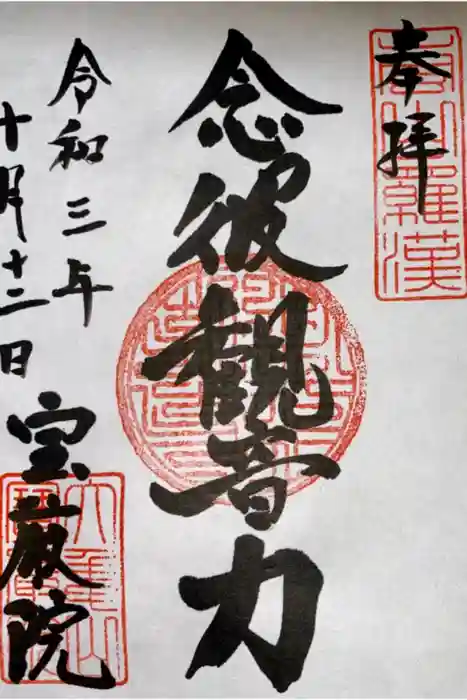 奉拝
念彼観音力
令和三年
十月十二日
宝厳院